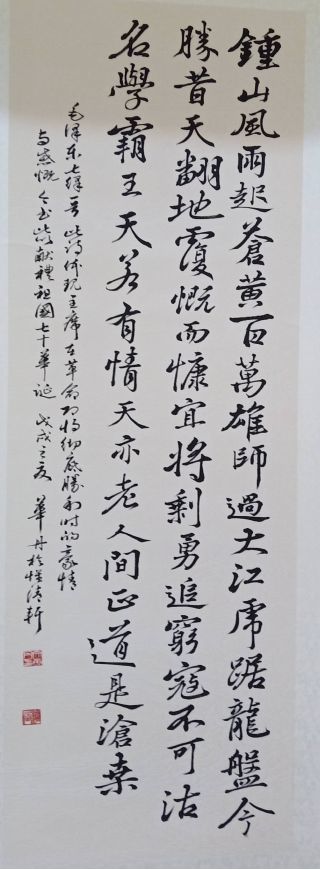 鍾山風雨起蒼黃百萬雄師過大江虎踞龍盤今
勝昔天翻地覆慨而慷宜將剩勇追窮寇不可沽
名學霸王天若有情天亦老人間正道是滄桒
毛泽东七律一首此詩体现主席在革命即将彻底勝利时的豪情
与感慨今书此以献禮祖國七十華诞 戊戌之夜 華丹於惟清軒